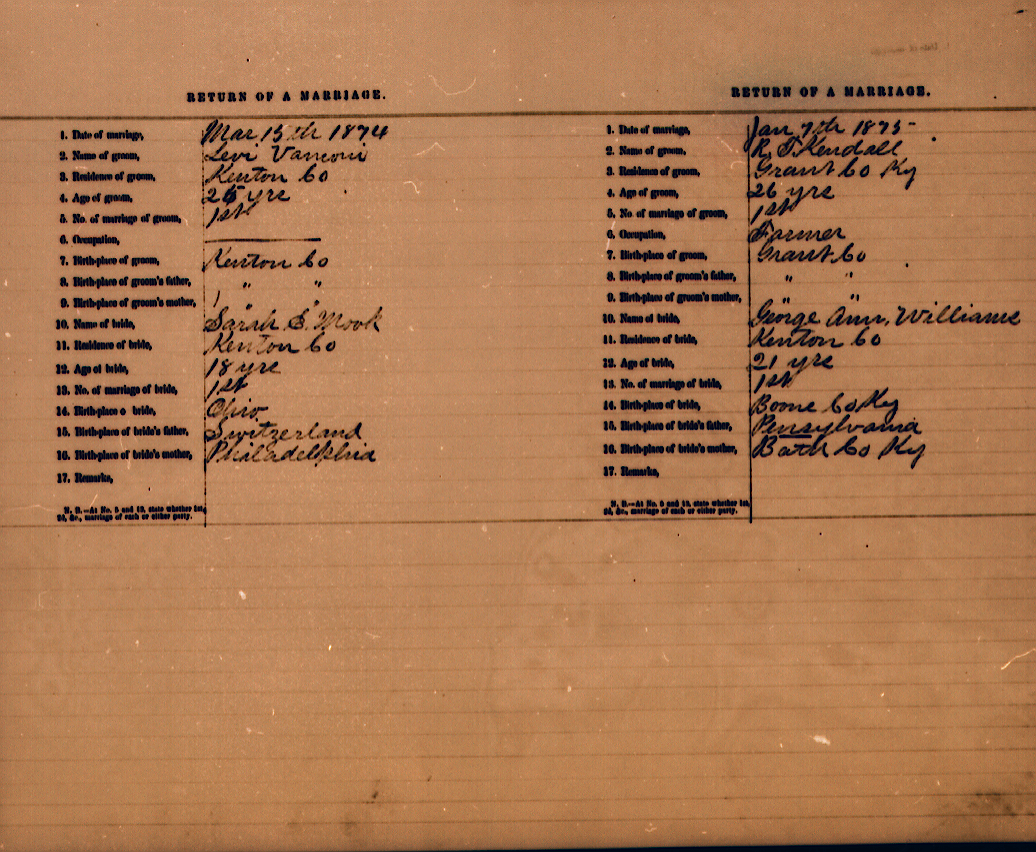 RETURN OF A MARRIAGE.
1. Date of marriage, Mar 15th 1874
2. Name of groom, Levi Vanconi
3. Residence of groom, Kenton Co
4. Age of groom, 26 yrs
5. No. of marriage of groom, 1st
6. Occupation,
7. Birth-place of groom, Kenton Co
8. Birth-place of groom's father, " "
9. Birth-place of groom's mother, " "
10. Name of bride, Sarah E. Mook
11. Residence of bride, Kenton Co
12. Age of bride, 18 yrs
13. No. of marriage of bride, 1st
14. Birth-place o bride, Ohio
15. Birth-place of bride's father, Switzerland
16. Birth-place of bride's mother, Philadelphia
17. Remarks,
N. B.—At No. 5 and 13, state whether 1st,
2d, &c., marriage of each or either party.
RETURN OF A MARRIAGE.
1. Date of marriage, Jan 7th 1875-
2. Name of groom, R. T. Kendall
3. Residence of groom, Grant Co Ky
4. Age of groom, 26 yrs
5. No. of marriage of groom, 1st
6. Occupation, Farmer
7. Birth-place of groom, Grant Co
8. Birth-place of groom's father, " "
9. Birth-place of groom's mother, " "
10. Name of bride, George Ann. Williams
11. Residence of bride, Kenton Co
12. Age of bride, 21 yrs
13. No. of marriage of bride, 1st
14. Birth-place of bride, Boone Co Ky
15. Birth-place of bride's father, Pensylvania
16. Birth-place of bride's mother, Bath Co Ky
17. Remarks,
N. B.—At No. 5 and 13, state whether 1st,
2d, &c., marriage of each or either party.